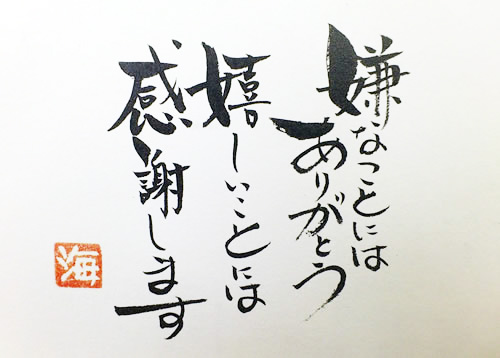 嫌なことには
ありがとう
嬉しいことには
感謝します
海